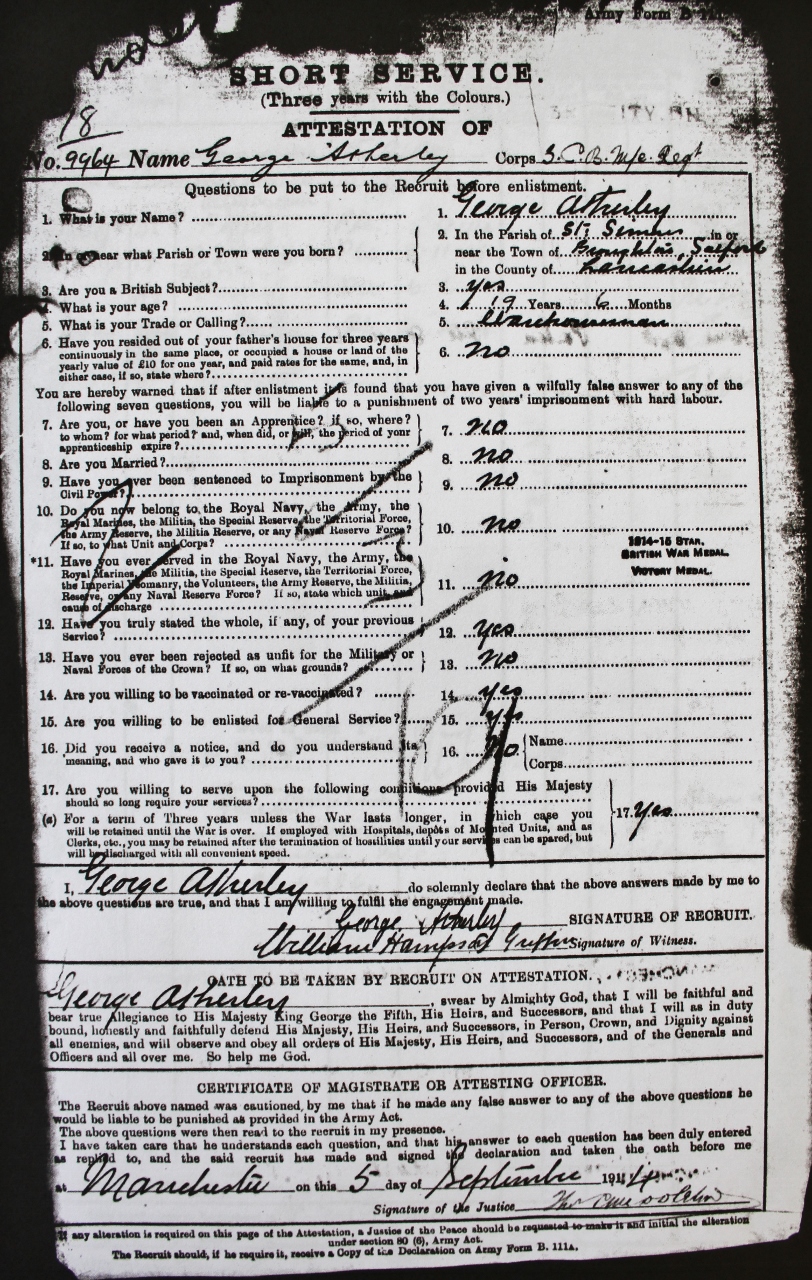 Army Form B
SHORT SERVICE.
(Three years with the Colours.)
18
ATTESTATION OF
No. 9964 Name George Atherley Corps
Questions to be put to the Recruit before enlistment.
1. What is your Name? 1. George Atherley
2. In or near what Parish or Town were you born? 2. In the Parish of St. Simons in or
near the Town of Broughton, Salford
in the County of Lancashire
3. Are you a British Subject? 3. yes
4. What is your age? 4. 19 Years 6 Months
5. What is your Trade or Calling? 5. Warehouseman
6. Have you resided out of your father's house for three years
continuously in the same place, or occupied a house or land of the
yearly value of £10 for one year, and paid rates for the same, and, in
either case, if so, state where? 6. no
You are hereby warned that if after enlistment it is found that you have given a wilfully false answer to any of the
following seven questions, you will be liable to a punishment of two years' imprisonment with hard labour.
7. Are you, or have you been an Apprentice? if so, where?
to whom? for what period? and, when did, or will, the period of your
apprenticeship expire? 7. no
8. Are you Married? 8. no
9. Have you ever been sentenced to Imprisonment by the
Civil Power? 9. no
10. Do you now belong to the Royal Navy, the Army, the
Royal Marines, the Militia, the Special Reserve, the Territorial Force,
the Army Reserve, the Militia Reserve, or any Naval Reserve Force?
If so, to what Unit and Corps? 10. no
1914-15 STAR,
BRITISH WAR MEDAL.
VICTORY MEDAL.
*11. Have you ever served in the Royal Navy, the Army, the
Royal Marines, the Militia, the Special Reserve, the Territorial Force,
the Imperial Yeomanry, the Volunteers, the Army Reserve, the Militia,
Reserve, or any Naval Reserve Force? If so, state which unit, and
cause of discharge 11. no
12. Have you truly stated the whole, if any, of your previous
Service? 12. yes
13. Have you ever been rejected as unfit for the Military or
Naval Forces of the Crown? If so, on what grounds? 13. no
14. Are you willing to be vaccinated or re-vaccinated? 14. yes
15. Are you willing to be enlisted for General Service? 15. yes
16. Did you receive a notice, and do you understand its
meaning, and who gave it to you? 16. no Name
Corps
17. Are you willing to serve upon the following conditions provided His Majesty
should so long require your services?
(a) For a term of Three years unless the War lasts longer, in which case you 17. yes
will be retained until the War is over. If employed with Hospitals, depôts of Mounted Units, and as
Clerks, etc., you may be retained after the termination of hostilities until your services can be spared, but
will be discharged with all convenient speed.
I, George Atherley do solemnly declare that the above answers made by me to
the above questions are true, and that I am willing to fulfil the engagement made.
George Atherley SIGNATURE OF RECRUIT.
William Signature of Witness.
OATH TO BE TAKEN BY RECRUIT ON ATTESTATION.
George Atherley, swear by Almighty God, that I will be faithful and
bear true Allegiance to His Majesty King George the Fifth, His Heirs, and Successors, and that I will as in duty
bound, honestly and faithfully defend His Majesty, His Heirs, and Successors, in Person, Crown, and Dignity against
all enemies, and will observe and obey all orders of His Majesty, His Heirs, and Successors, and of the Generals and
Officers and all over me. So help me God.
CERTIFICATE OF MAGISTRATE OR ATTESTING OFFICER.
The Recruit above named was cautioned by me that if he made any false answer to any of the above questions he
would be liable to be punished as provided in the Army Act.
The above questions were then read to the recruit in my presence.
I have taken care that he understands each question, and that his answer to each question has been duly entered
as replied to, and the said recruit has made and signed the declaration and taken the oath before me
at Manchester on this 5 day of September 1914
Signature of the Justice
If any alteration is required on this page of the Attestation, a Justice of the Peace should be requested to make it and initial the alteration
under section 80 (6), Army Act.
The Recruit should, if he require it, receive a Copy of the Declaration on Army Form B. 111A.